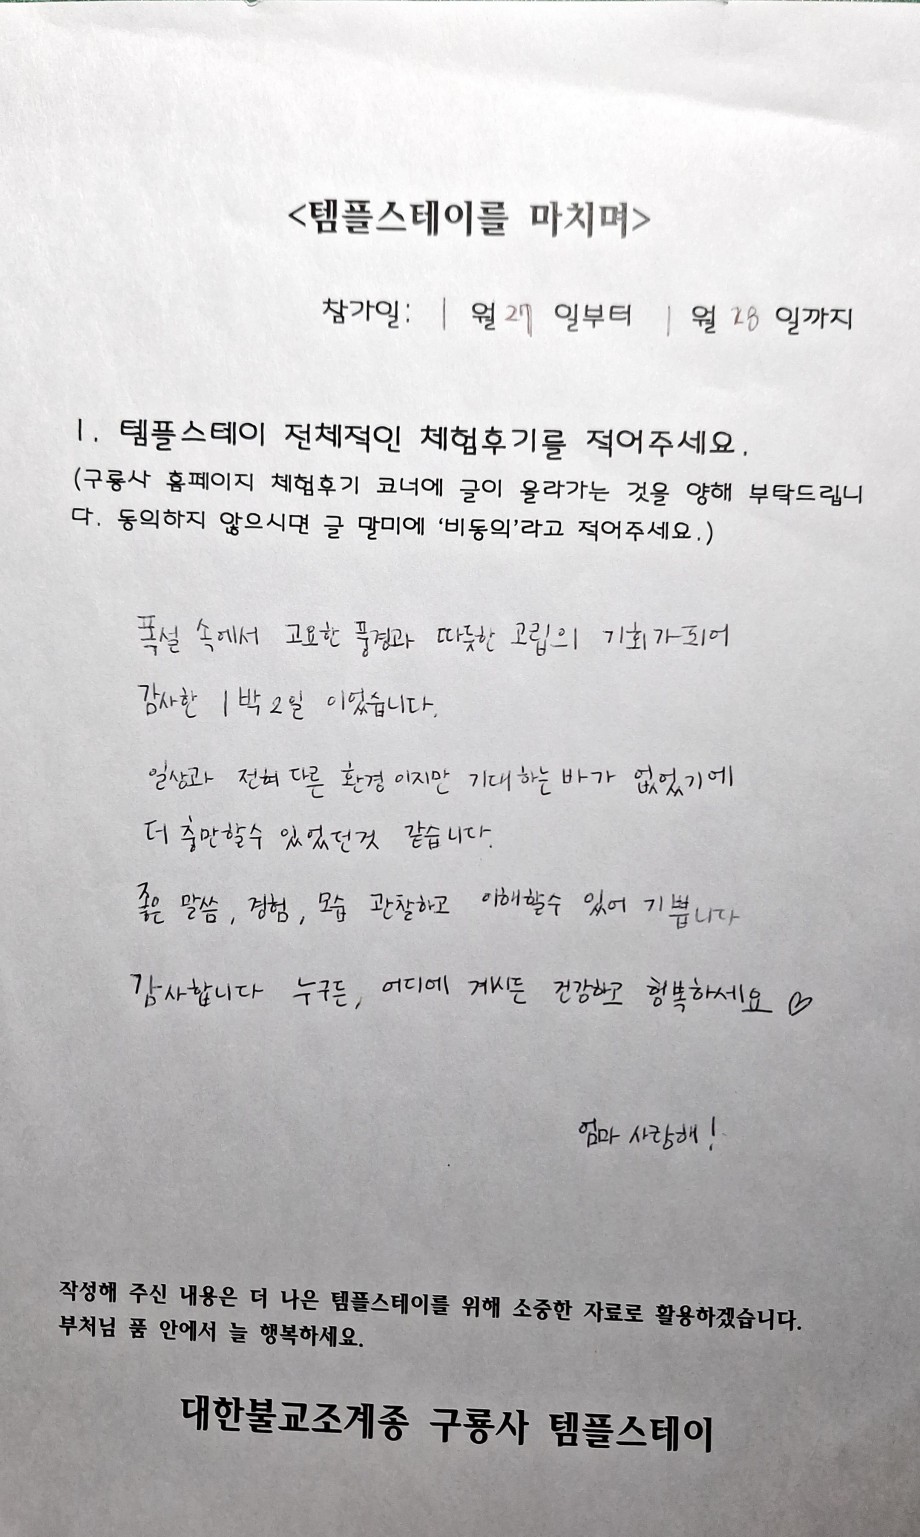 <템플스테이를 마치며>
참가일: 1 월 27 일부터 1 월 28 일까지
1. 템플스테이 전체적인 체험후기를 적어주세요.
(구룡사 홈페이지 체험후기 코너에 글이 올라가는 것을 양해 부탁드립니
다. 동의하지 않으시면 글 말미에 '비동의'라고 적어주세요.)
폭설 속에서 고요한 풍경과 따듯한 고립의 기회가 되어
감사한 1박 2일 이었습니다.
일상과 전혀 다른 환경이지만 기대하는 바가 없었기에
더 충만할수 있었던것 같습니다.
좋은 말씀, 경험, 모습 관찰하고 이해할수 있어 기쁩니다
감사합니다 누구든, 어디에 계시든 건강하고 행복하세요 ♡
엄마 사랑해!
작성해 주신 내용은 더 나은 템플스테이를 위해 소중한 자료로 활용하겠습니다.
부처님 품 안에서 늘 행복하세요.
대한불교조계종 구룡사 템플스테이